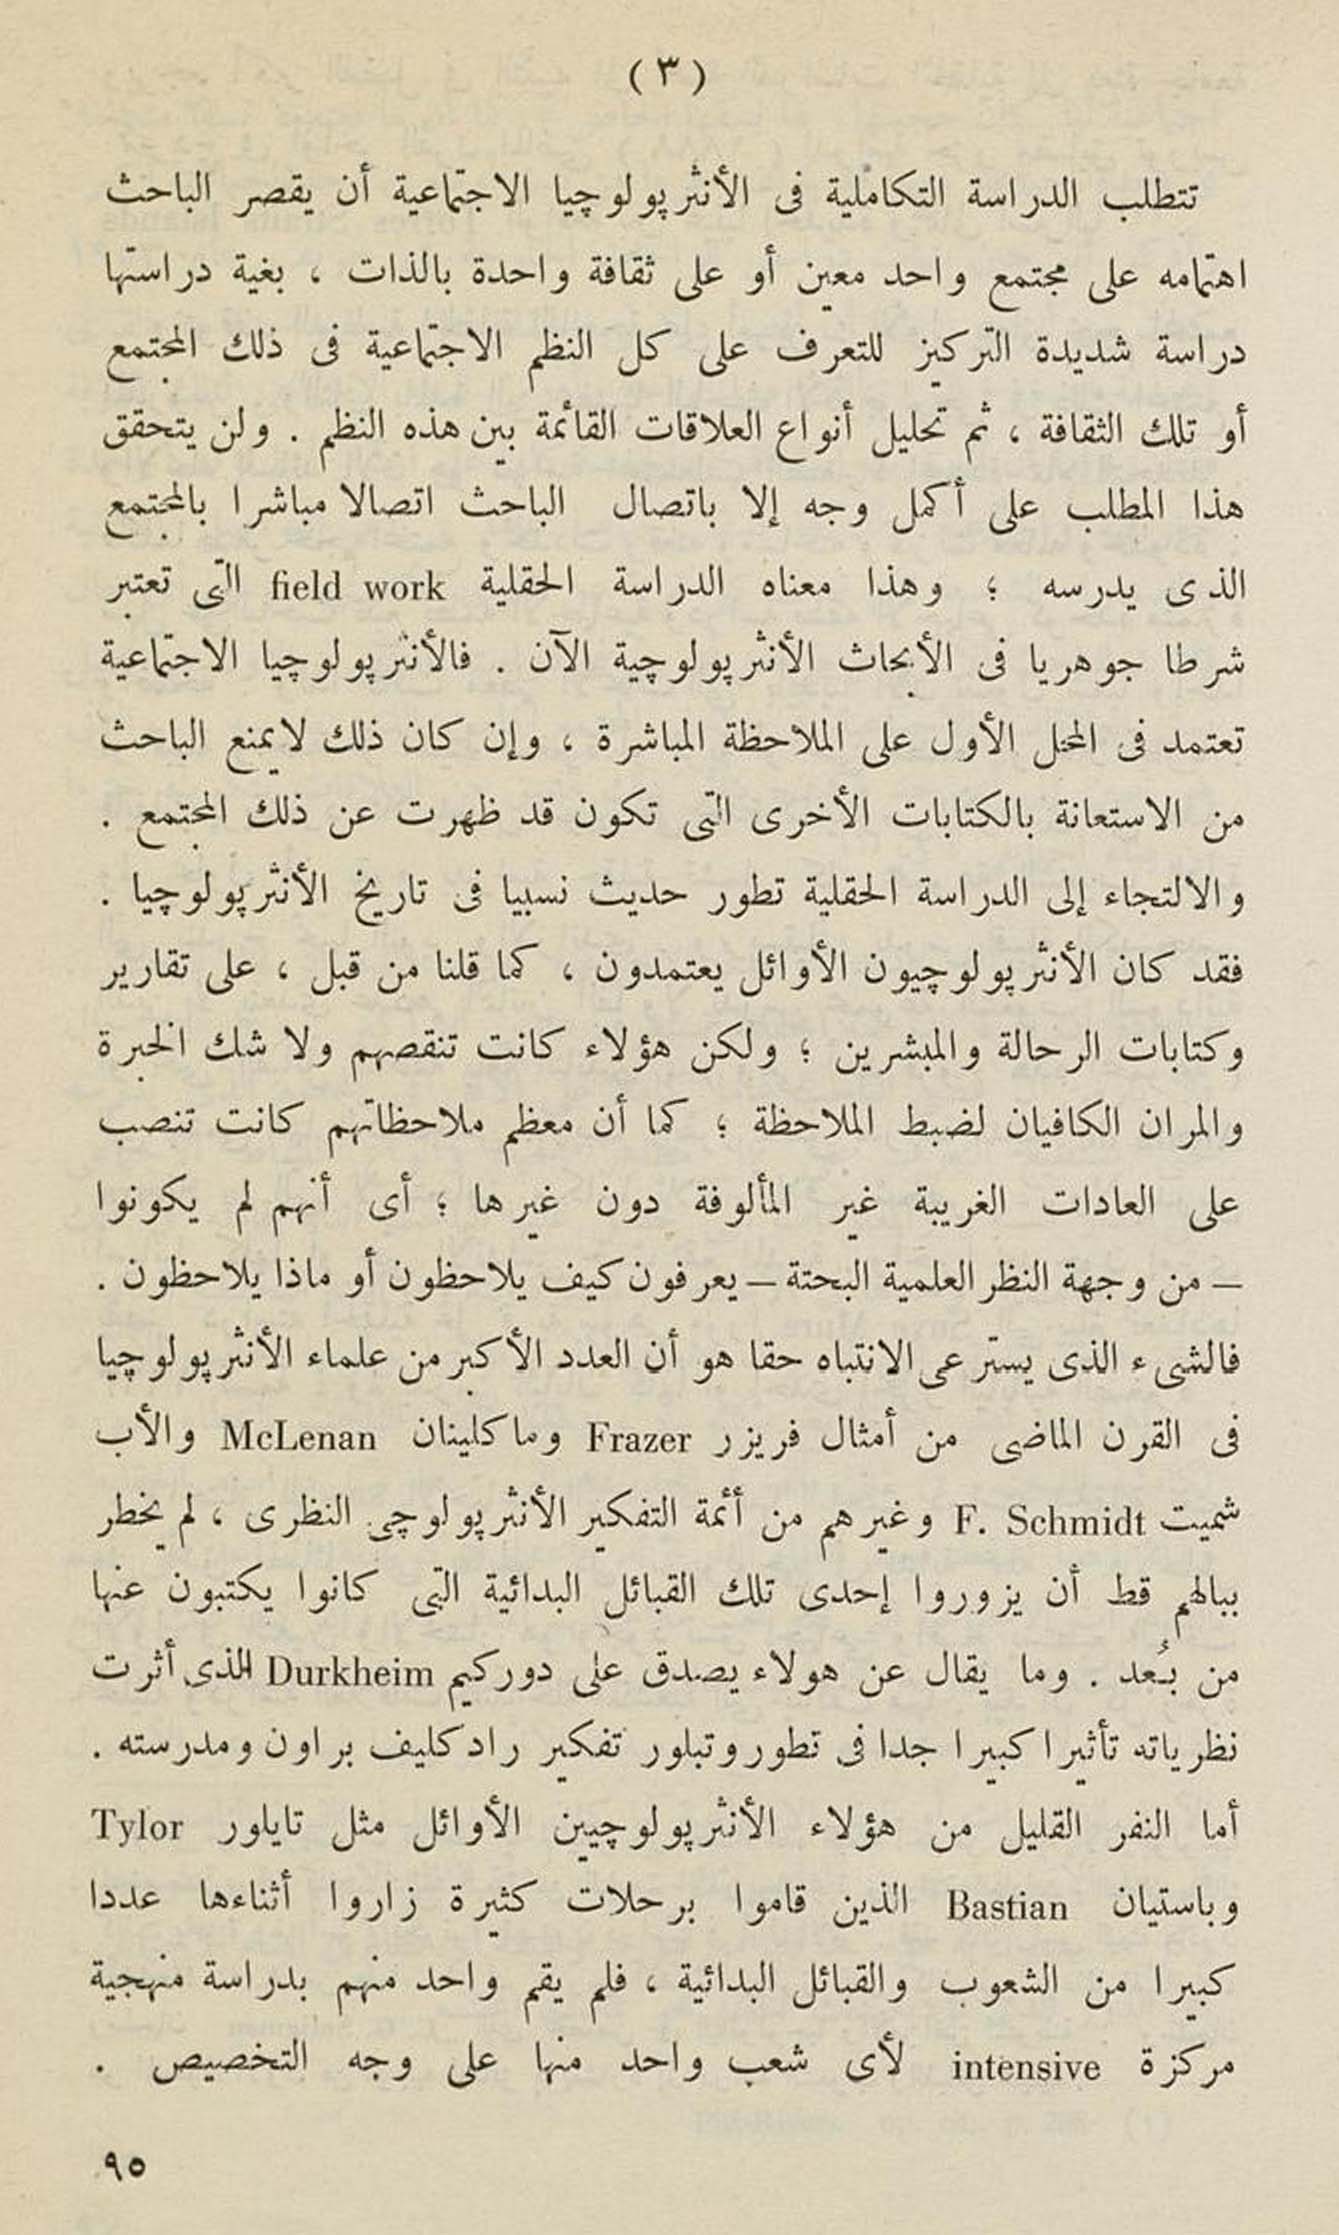 (٣)
تتطلب الدراسة التكاملية فى الأنثرپولوچيا الاجتماعية أن يقصر الباحث
اهتمامه على مجتمع واحد معين أو على ثقافة واحدة بالذات ، بغية دراستها
دراسة شديدة التركيز للتعرف على كل النظم الاجتماعية فى ذلك المجتمع
أو تلك الثقافة ، ثم تحليل أنواع العلاقات القائمة بين هذه النظم . ولن يتحقق
هذا المطلب على أكمل وجه إلا باتصال الباحث اتصالا مباشرا بالمجتمع
الذى يدرسه ؛ وهذا معناه الدراسة الحقلية field work التى تعتبر
شرطا جوهريا فى الأبحاث الأنثرپولوچية الآن . فالأنثرپولوچيا الاجتماعية
تعتمد فى المحل الأول على الملاحظة المباشرة ، وإن كان ذلك لا يمنع الباحث
من الاستعانة بالكتابات الأخرى التى تكون قد ظهرت عن ذلك المجتمع .
والالتجاء إلى الدراسة الحقلية تطور حديث نسبيا فى تاريخ الأنثرپولوچيا .
فقد كان الأنثرپولوچيون الأوائل يعتمدون ، كما قلنا من قبل ، على تقارير
وكتابات الرحالة والمبشرين ؛ ولكن هؤلاء كانت تنقصهم ولا شك الخبرة
والمران الكافيان لضبط الملاحظة ؛ كما أن معظم ملاحظاتهم كانت تنصب
على العادات الغريبة غير المألوفة دون غيرها ؛ أى أنهم لم يكونوا
– من وجهة النظر العلمية البحتة – يعرفون كيف يلاحظون أو ماذا يلاحظون .
فالشىء الذى يسترعى الانتباه حقا هو أن العدد الأكبر من علماء الأنثرپولوچيا
فى القرن الماضى من أمثال فريزر Frazer وماكلينان McLenan والأب
شميت F. Schmidt وغيرهم من أئمة التفكير الأنثرپولوچى النظرى ، لم يخطر
ببالهم قط أن يزوروا إحدى تلك القبائل البدائية التى كانوا يكتبون عنها
من بُعد . وما يقال عن هولاء يصدق على دوركيم Durkheim الذى أثرت
نظرياته تأثيرا كبيرا جدا فى تطور وتبلور تفكير رادكليف براون ومدرسته .
أما النفر القليل من هؤلاء الأنثرپولوچيين الأوائل مثل تايلور Tylor
وباستيان Bastian الذين قاموا برحلات كثيرة زاروا أثناءها عددا
كبيرا من الشعوب والقبائل البدائية ، فلم يقم واحد منهم بدراسة منهجية
مركزة intensive لأى شعب واحد منها على وجه التخصيص .
٩٥